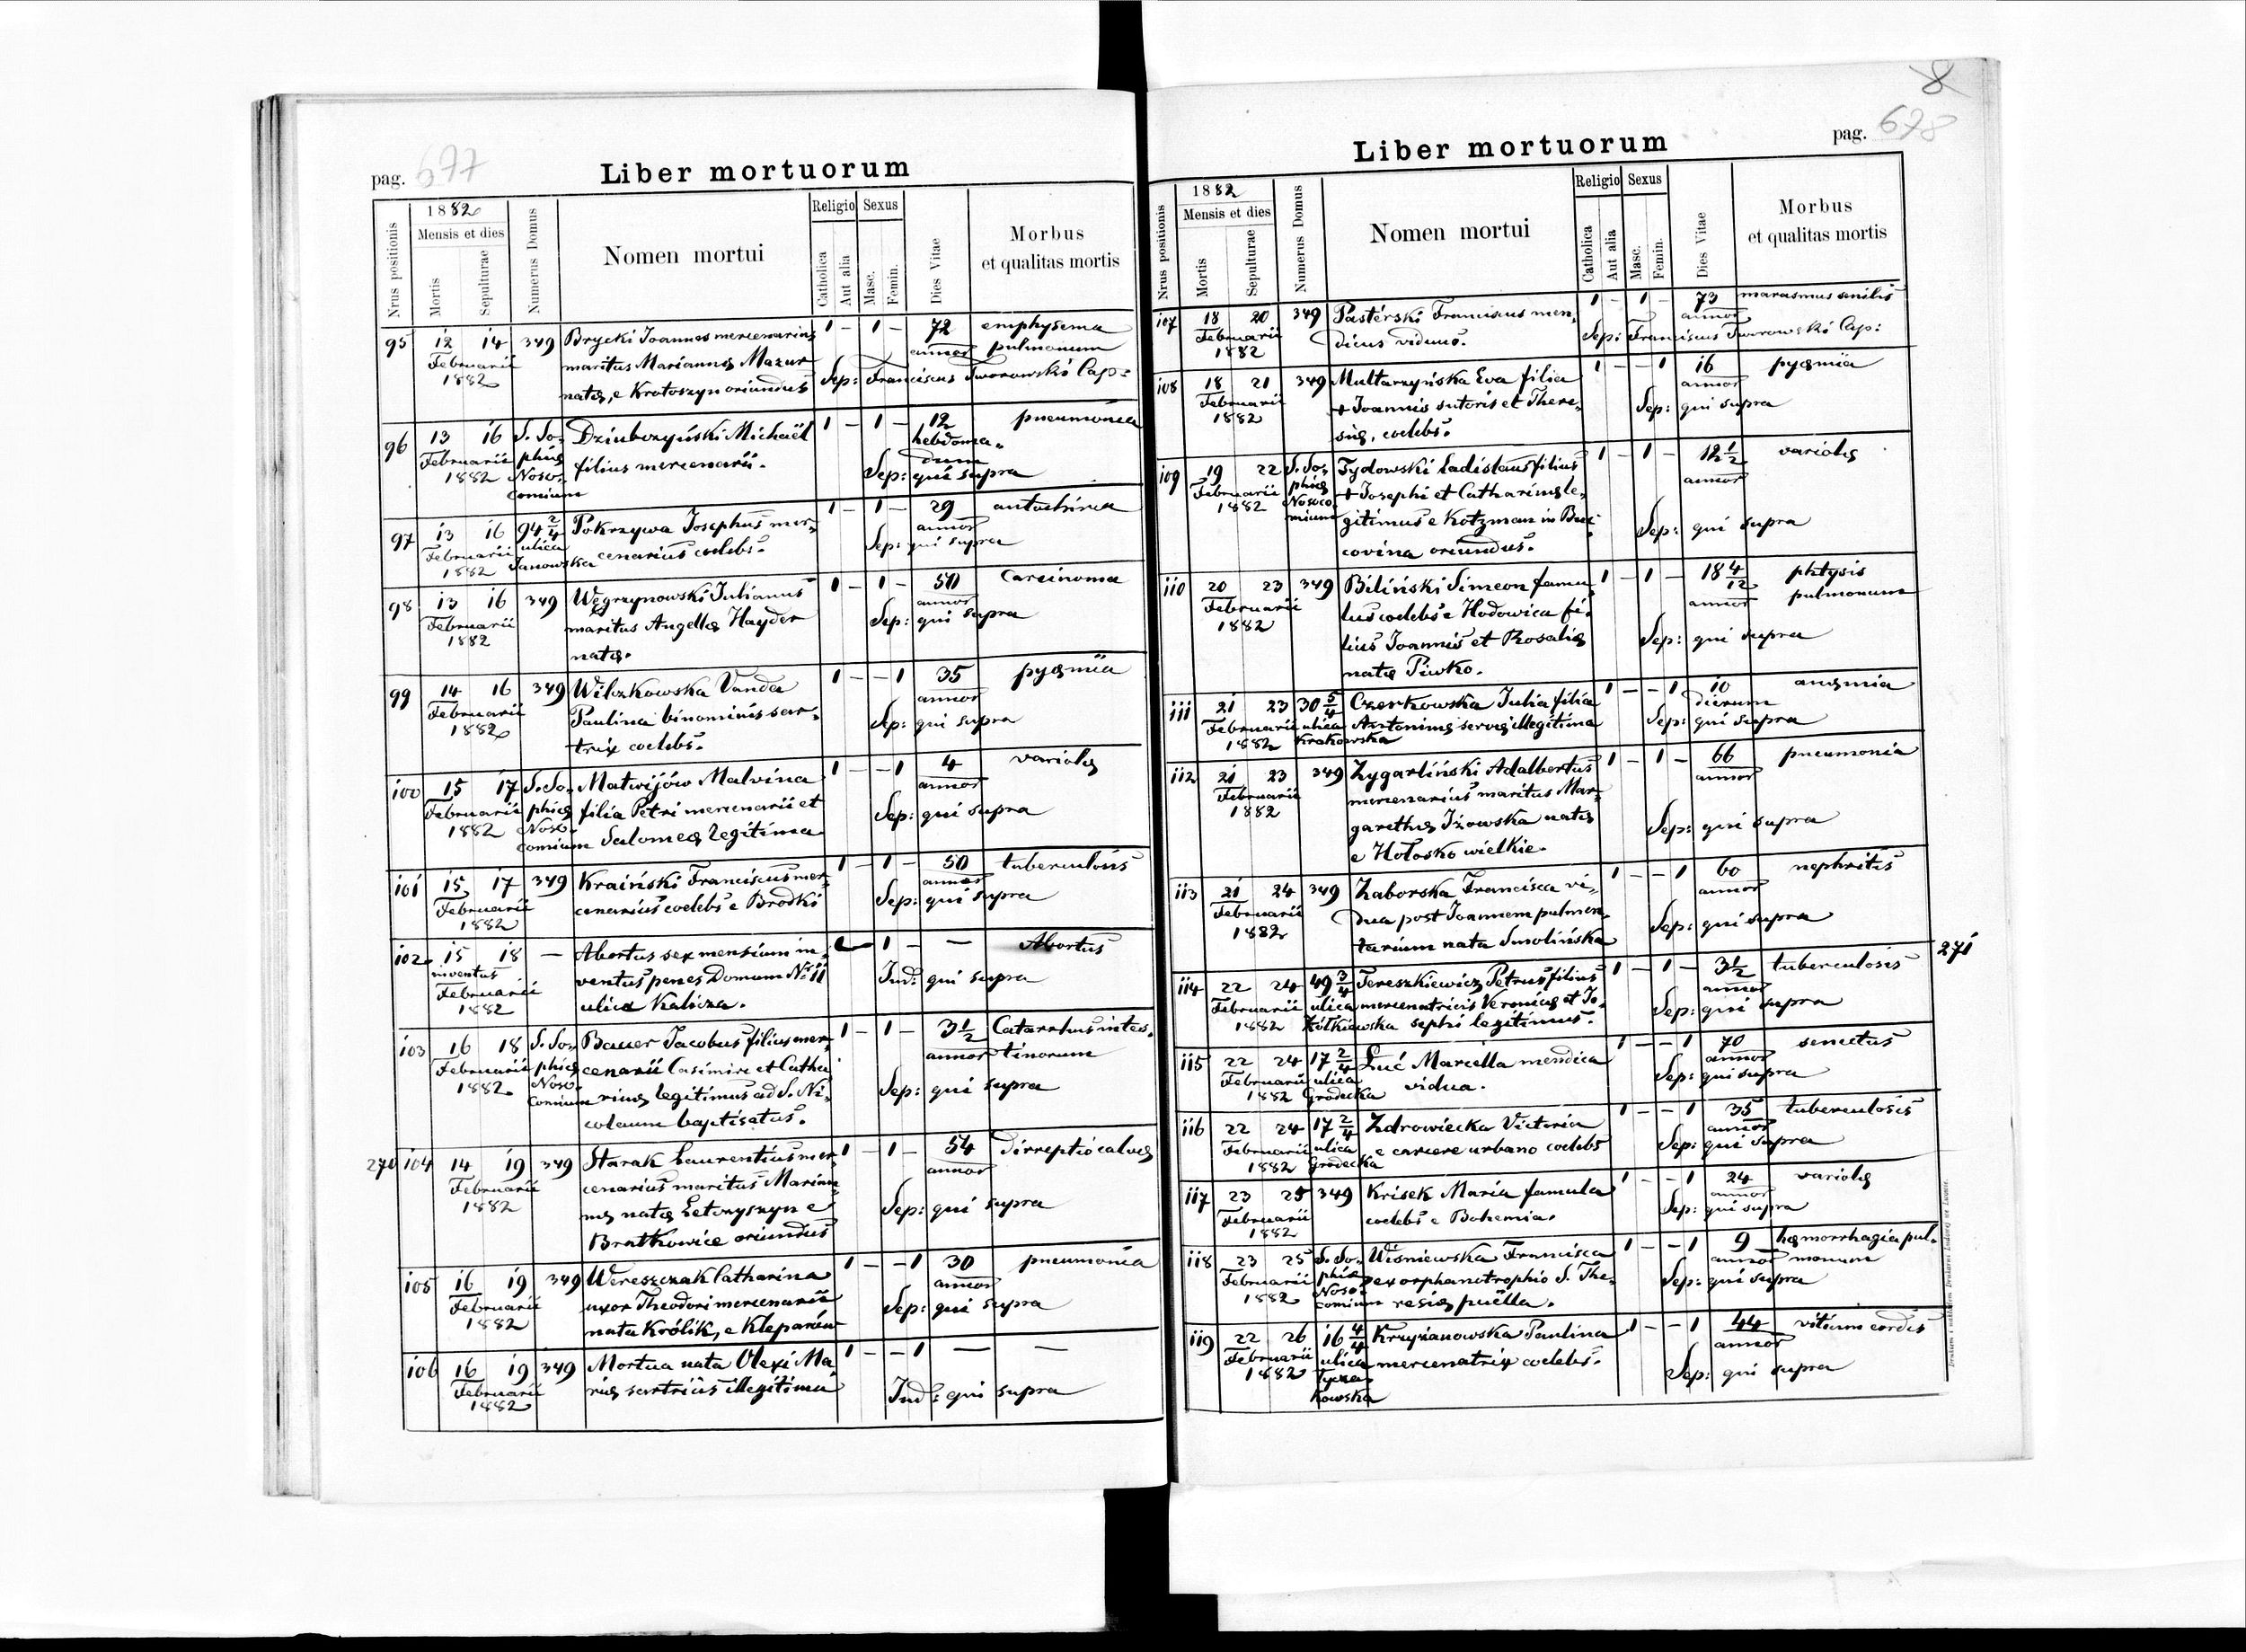 pag. 677
Liber mortuorum
Nrus positionis
1882
Mensis et dies
Mortis
Sepulturae
Numerus Domus
Nomen mortui
Religio
Catholica
Aut alia
Sexus
Masc.
Femin.
Dies Vitae
Morbus
et qualitas mortis
95 12 14 349 Brycki Joannes mercenarius 1 – 1 – 72 emphysema
Februarii maritus Mariannę Mazur annor pulmonum
1882 natę, e Krotoszyn oriundus Sep: Franciscus Tworowski Cap:
96 13 16 S. So, Dziubczyński Michaël 1 – 1 – 12 pneumonia
Februarii phię filius mercenarii. hebdoma,
1882 Noso, dum
comium Sep: qui supra
97 13 16 94 2/4 Pokrzywa Josephus mer, 1 – 1 – 29 autochiria
Februarii ulica cenarius coelebs. annor
1882 Janowska Sep: qui supra
98 13 16 349 Węgrzynowski Julianus 1 – 1 – 50 Carcinoma
Februarii maritus Angellę Hayder annor
1882 natę. Sep: qui supra
99 14 16 349 Wilczkowska Vanda 1 – – 1 35 pyęmia
Februarii Paulina binominis sar, annor
1882 trix coelebs. Sep: qui supra
100 15 17 S. So, Matwijów Malvina 1 – – 1 4 variolę
Februarii phię filia Petri mercenarii et annor
1882 Noso, Salomeę legitima Sep: qui supra
comium
101 15 17 349 Kraiński Franciscus mer, 1 – 1 – 50 tuberculosis
Februarii cenarius coelebs e Brodki annor
1882 Sep: qui supra
102 15 18 — Abortus sex mensium in, 1 – 1 – — Abortus
inventus ventus penes Domum No 11
Februarii ulica Kalicza. Ind: qui supra
1882
103 16 18 S. So, Bauer Jacobus filius mer, 1 – 1 – 3 1/2 Catarrhus intes,
Februarii phię cenarii Casimiri et Catha, annor tinorum
1882 Noso, rinę legitimus ad S. Ni, Sep: qui supra
comium colaum baptisatus.
270 104 14 19 349 Starak Laurentius mer, 1 – 1 – 54 Dirreptio calvę
Februarii cenarius maritus Marian, annor
1882 nę natę Letonyszyn e Sep: qui supra
Bratkowice oriundus
105 16 19 349 Wereszczak Catharina 1 – – 1 30 pneumonia
Februarii uxor Theodori mercenarii annor
1882 nata Królik, e Kleparów Sep: qui supra
106 16 19 349 Mortua nata Olexi Ma 1 – – 1 — —
Februarii rię sartricis illegitima
1882 Ind: qui supra
8
pag. 678
Liber mortuorum
Nrus positionis
1882
Mensis et dies
Mortis
Sepulturae
Numerus Domus
Nomen mortui
Religio
Catholica
Aut alia
Sexus
Masc.
Femin.
Dies Vitae
Morbus
et qualitas mortis
107 18 20 349 Pasterski Franciscus men, 1 – 1 – 73 marasmus senilis
Februarii dicus viduus. annor
1882 Sep: Franciscus Tworowski Cap:
108 18 21 349 Multarzyńska Eva filia 1 – – 1 16 pyęmia
Februarii + Joannis sutoris et There, annor
1882 się, coelebs. Sep: qui supra
109 19 22 S. So, Tydowski Ladislaus filius 1 – 1 – 12 1/2 variolę
Februarii phię + Josephi et Catharinę le, annor
1882 Nosoco, gitimus e Kotzman in Bu
mium covina oriundus. Sep: qui supra
110 20 23 349 Biliński Simeon famu, 1 – 1 – 18 4/12 phtysis
Februarii lus coelebs e Hodowica fi, annor pulmonum
1882 lius Joannis et Rosalię Sep: qui supra
natę Piwko.
111 21 23 30 5/4 Czerkowska Julia filia 1 – – 1 10 anęmia
Februarii ulica Antoninę servę illegitima dierum
1882 Krakowska Sep: qui supra
112 21 23 349 Zygarliński Adalbertus 1 – 1 – 66 pneumonia
Februarii mercenarius maritus Mar, annor
1882 garethę Iżowska natę Sep: qui supra
e Hołosko wielkie.
113 21 24 349 Zaborska Francisca vi, 1 – – 1 60 nephritis
Februarii dua post Joannem pulmen, annor
1882 tarium nata Smolińska Sep: qui supra
114 22 24 49 3/4 Tereszkiewicz Petrus filius 1 – 1 – 3 1/2 tuberculosis 271
Februarii ulica mercenatricis Veronicę et Jo, annor
1882 Żółkiewska sephi legitimus. Sep: qui supra
115 22 24 17 2/4 Łuć Marcella mendica 1 – – 1 70 senectus
Februarii ulica vidua. annor
1882 Grodecka Sep: qui supra
116 22 24 17 2/4 Zdrowiecka Victoria 1 – – 1 35 tuberculosis
Februarii ulica e carcere urbano coelebs annor
1882 Grodecka Sep: qui supra
117 23 25 349 Krisek Maria famula 1 – – 1 24 variolę
Februarii coelebs e Bohemia. annor
1882 Sep: qui supra
118 23 25 S. So, Wisniewska Francisca 1 – – 1 9 hęmorrhagia pul,
Februarii phię ex orphanotrophio S. The, annor monum
1882 Noso, resię puëlla. Sep: qui supra
comium
119 22 26 16 4/4 Kruyianowska Paulina 1 – – 1 44 vitium cordis
Februarii ulica mercenatrix coelebs. annor
1882 Łycza, Sep: qui supra
kowska